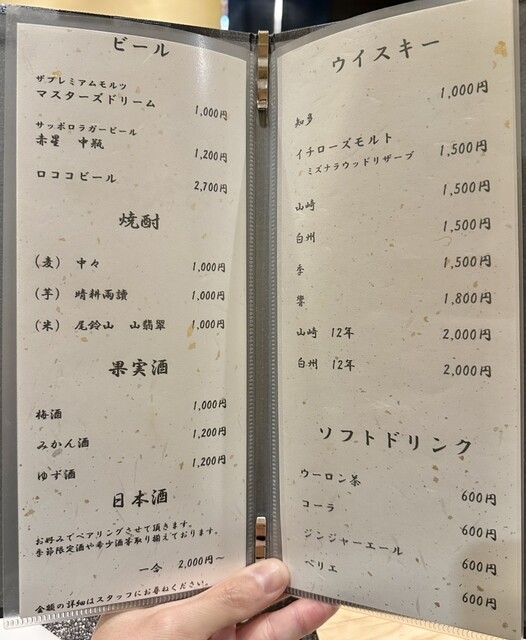 ビール
ザプレミアムモルツ
マスターズドリーム 1,000円
サッポロラガービール
赤星 中瓶 1,200円
ロココビール 2,700円
焼酎
(麦) 中々 1,000円
(芋) 晴耕雨讀 1,000円
(米) 尾鈴山 山翡翠 1,000円
果実酒
梅酒 1,000円
みかん酒 1,200円
ゆず酒 1,200円
日本酒
お好みでペアリングさせて頂きます。
季節限定酒や希少酒等取り揃えております。
一合 2,000円〜
金額の詳細はスタッフにお尋ねください。
ウイスキー
知多 1,000円
イチローズモルト
ミズナラウッドリザーブ 1,500円
山崎 1,500円
白州 1,500円
季 1,500円
響 1,800円
山崎 12年 2,000円
白州 12年 2,000円
ソフトドリンク
ウーロン茶 600円
コーラ 600円
ジンジャーエール 600円
ペリエ 600円